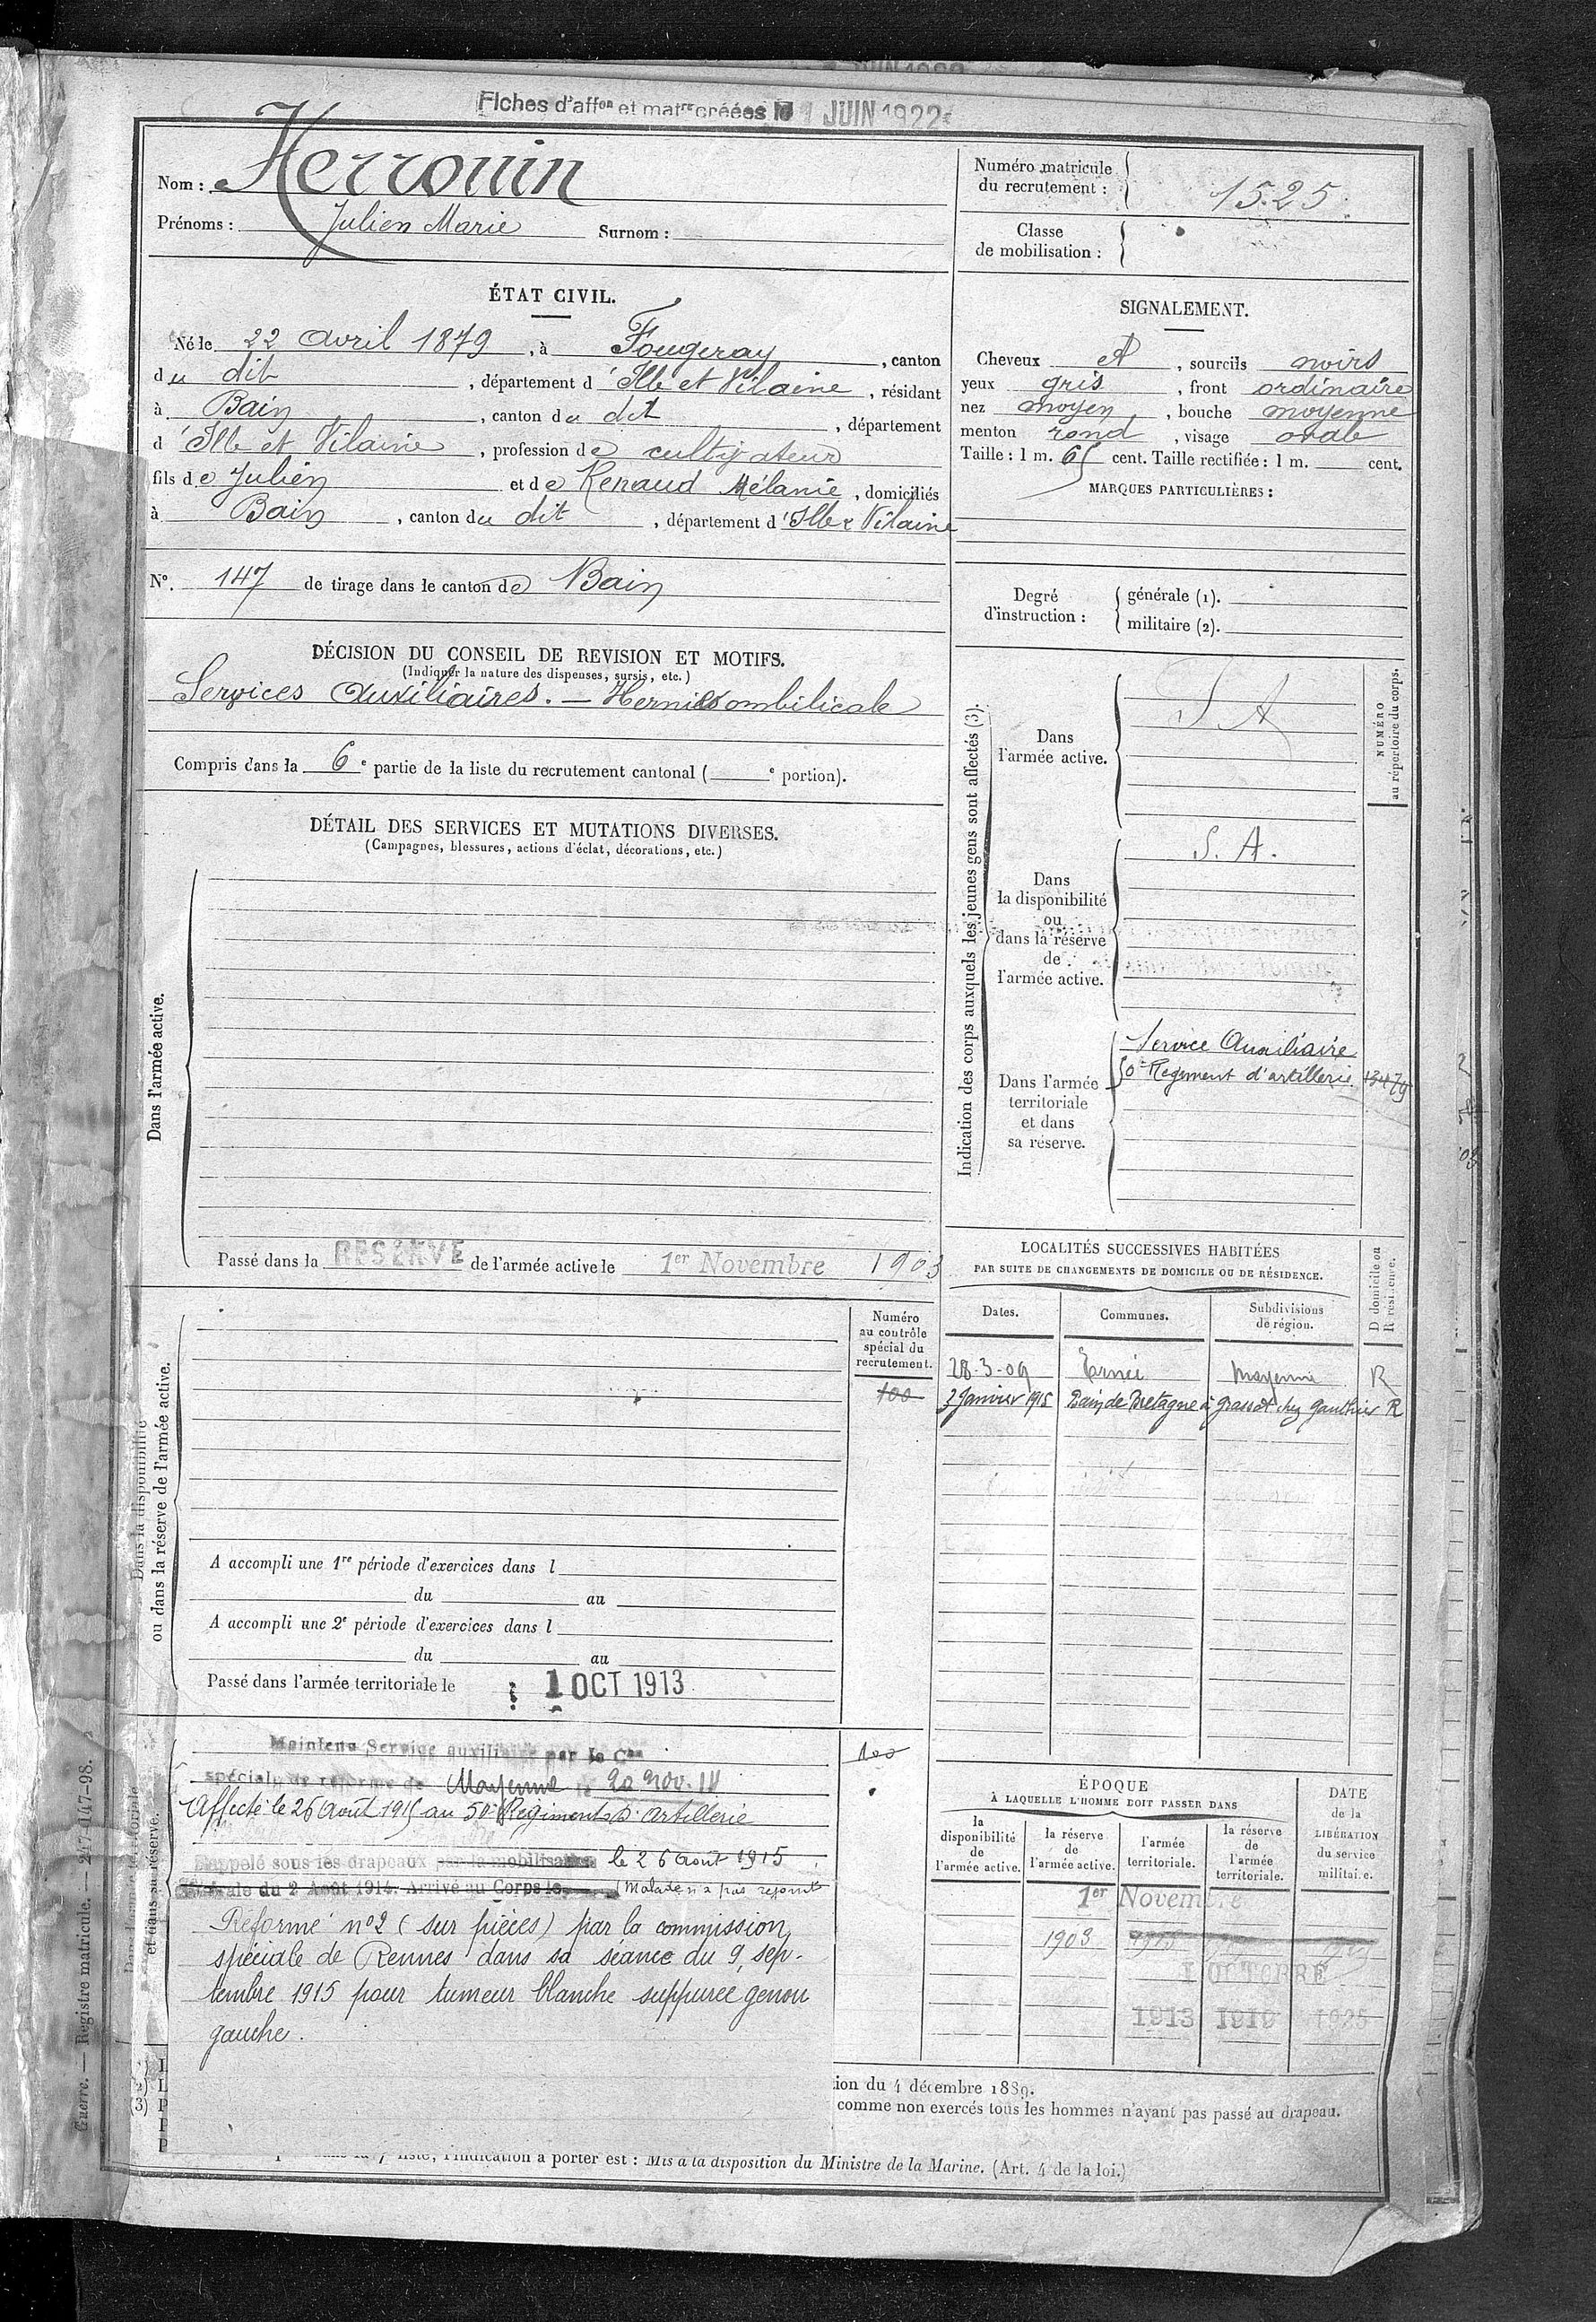 Fiches d'aff<sup>on</sup> et mat<sup>re</sup> créées le 1 JUIN 1922
Nom : Herrouin
Prénoms : Julien Marie Surnom :
Numéro matricule du recrutement : 1525
Classe de mobilisation :
ÉTAT CIVIL.
Né le 22 avril 1879, à Fougeray, canton
du dit, département d'Ille et Vilaine, résidant
à Bain, canton du dit, département
d'Ille et Vilaine, profession de cultivateur
fils de Julien et de Renaud Mélanie, domiciliés
à Bain, canton du dit, département d'Ille & Vilaine
N°. 147 de tirage dans le canton de Bain
SIGNALEMENT.
Cheveux et, sourcils noirs
yeux gris, front ordinaire
nez moyen, bouche moyenne
menton rond, visage ovale
Taille : 1 m. 65 cent. Taille rectifiée : 1 m. cent.
MARQUES PARTICULIÈRES :
Degré d'instruction :
générale (1).
militaire (2).
DÉCISION DU CONSEIL DE REVISION ET MOTIFS.
(Indiquer la nature des dispenses, sursis, etc.)
Services auxiliaires. — Hernie ombilicale
Compris dans la 6e partie de la liste du recrutement cantonal ( e portion).
DÉTAIL DES SERVICES ET MUTATIONS DIVERSES.
(Campagnes, blessures, actions d'éclat, décorations, etc.)
Dans l'armée active.
Passé dans la RÉSERVE de l'armée active le 1er Novembre 1903
Indication des corps auxquels les jeunes gens sont affectés (3).
NUMÉRO au répertoire du corps.
Dans l'armée active.
S A
Dans la disponibilité ou dans la réserve de l'armée active.
S. A.
Dans l'armée territoriale et dans sa réserve.
Service Auxiliaire
50e Régiment d'artillerie
LOCALITÉS SUCCESSIVES HABITÉES
PAR SUITE DE CHANGEMENTS DE DOMICILE OU DE RÉSIDENCE.
Dates. Communes. Subdivisions de région. D domicile ou R résidence.
28-3-09 Ernée Mayenne R
3 Janvier 1915 Bain de Bretagne à Grassat chez Gauthier R
Dans la disponibilité ou dans la réserve de l'armée active.
Numéro au contrôle spécial du recrutement.
100
A accompli une 1re période d'exercices dans l
du au
A accompli une 2e période d'exercices dans l
du au
Passé dans l'armée territoriale le 1 OCT 1913
Maintenu Service auxiliaire par la Con
spéciale de réforme de Mayenne le 20 nov. 14
100
Affecté le 26 Août 1915 au 50e Régiment d'artillerie
Rappelé sous les drapeaux par la mobilisation le 26 Août 1915
générale du 2 Août 1914. Arrivé au Corps le (Malade n'a pas rejoint
Réformé n°2 (sur pièces) par la commission
spéciale de Rennes dans sa séance du 9 sep-
tembre 1915 pour tumeur blanche suppurée genou
gauche.
et dans sa réserve.
ÉPOQUE
À LAQUELLE L'HOMME DOIT PASSER DANS
la disponibilité de l'armée active.
la réserve de l'armée active.
l'armée territoriale.
la réserve de l'armée territoriale.
DATE de la LIBÉRATION du service militaire.
1er Novembre
1903
1 OCTOBRE
1913 1919 1925
ion du 4 décembre 1889.
comme non exercés tous les hommes n'ayant pas passé au drapeau.
liste, l'indication à porter est : Mis à la disposition du Ministre de la Marine. (Art. 4 de la loi.)
Guerre. — Registre matricule. — 247-147-98.